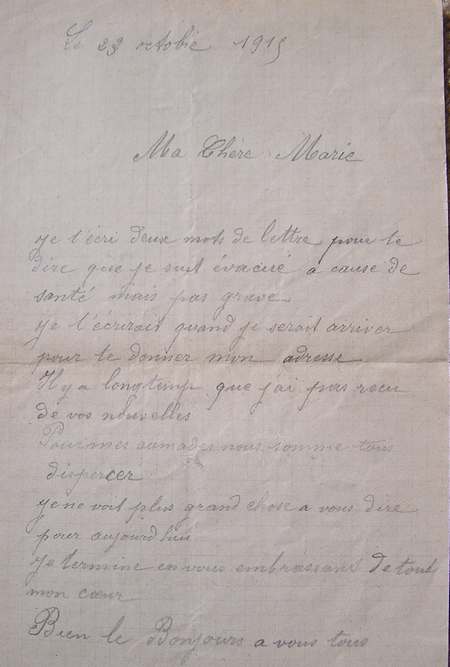 Le 29 octobre 1915
Ma Chère Marie
je t'écri deux mots de lettre pour te
dire que je suit évacué a cause de
santé mais pas grave
je t'écrirait quand je serait arriver
pour te donner mon adresse
Il y a longtemp que j'ai pas recu
de vos nouvelles
Pour mes camades nous somme tous
disperser
je ne voit plus grand chose a vous dire
pour aujourd'hui
Je termine en vous embrassant de tout
mon cœur
Bien le Bonjours a vous tous